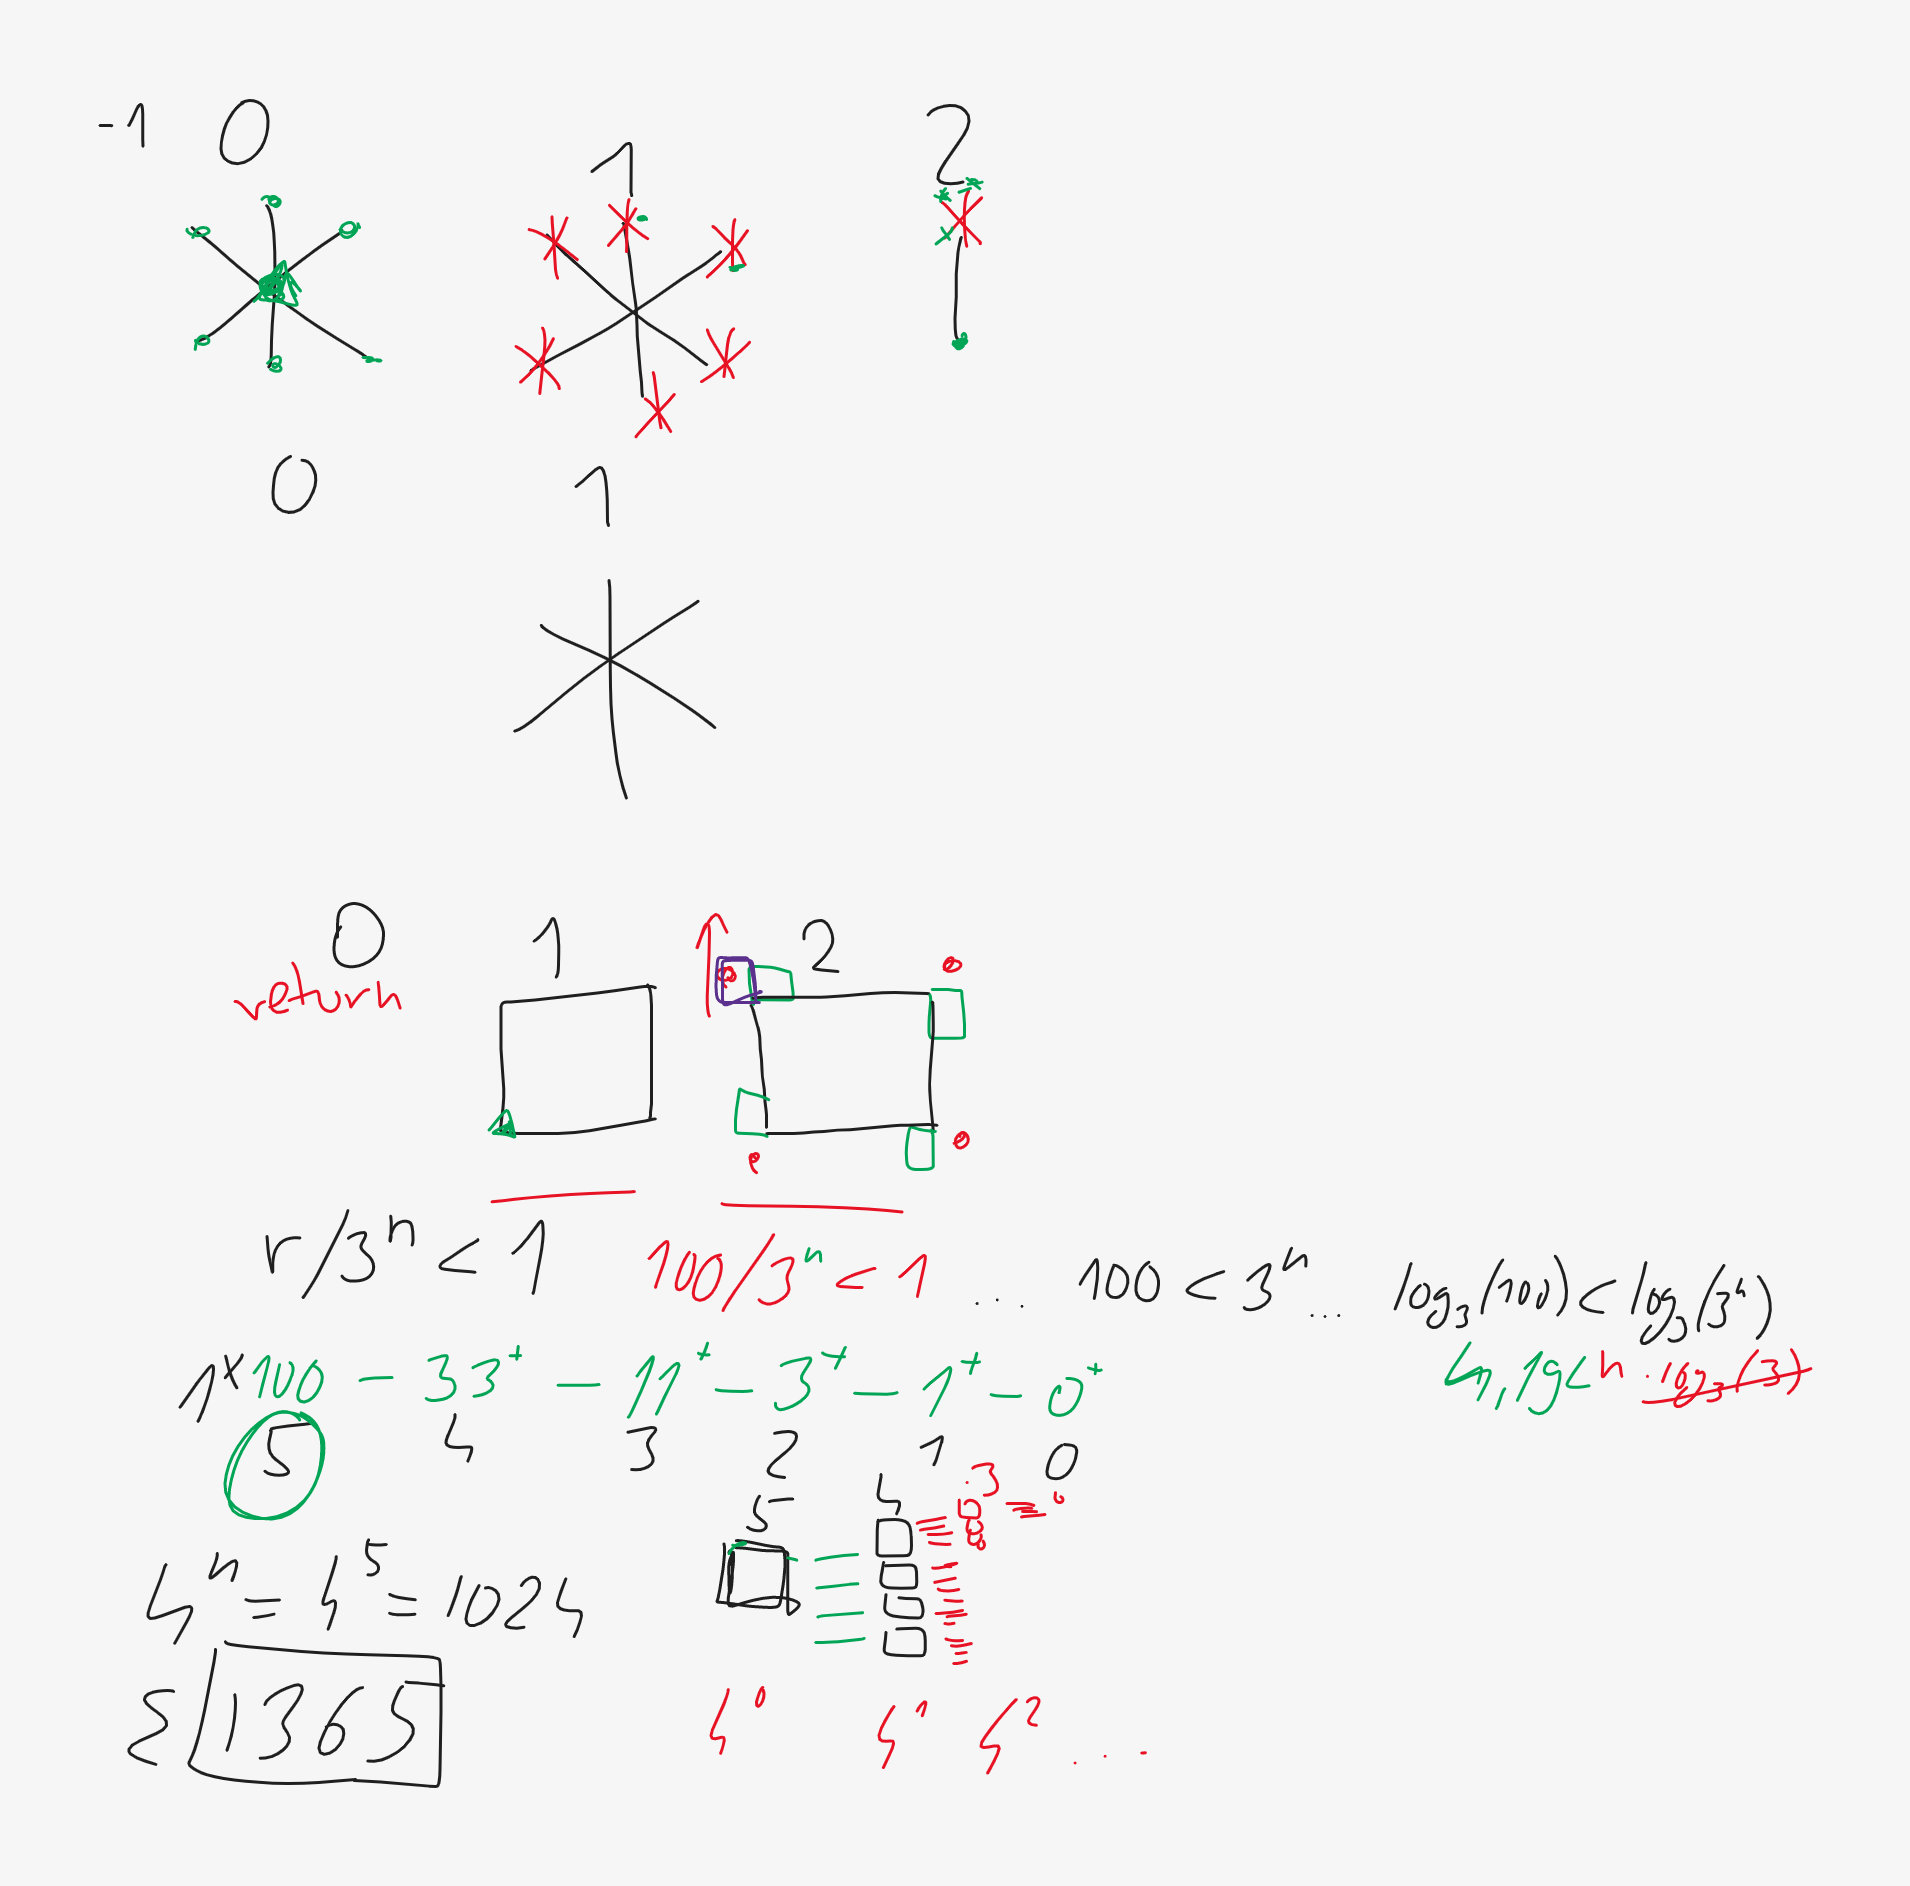 -1 0 1 2
0 1
0 1 2
return
r/3^n < 1 100/3^n < 1 ... 100 < 3^n ... log₃(100) < log₃(3^n)
1x100 - 33⁺ - 11⁺ - 3⁺ - 1⁺ - 0⁺ 4,19 < n · log₃(3)
5 4 3 2 1 0
5 4 3
4^n = 4^5 = 1024
Σ 1365 4^0 4^1 4^2 ...